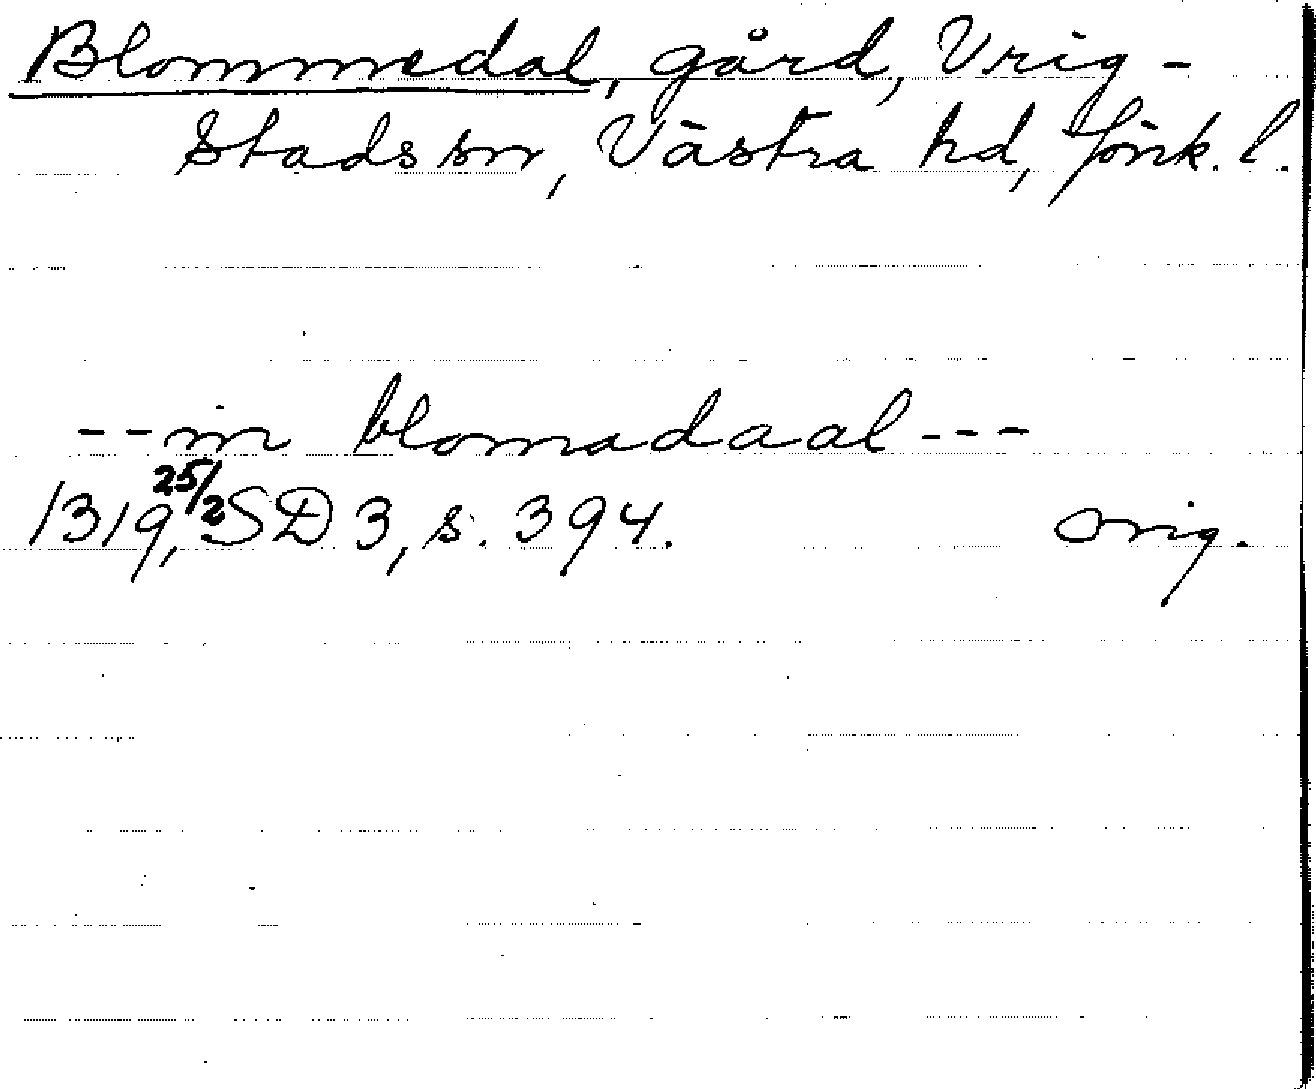 Blommedal, gård, Vrig-
stads sn, Västra hd, Jönk. l.
--in blomadaal---
1319, 25/2 SD 3, s. 394. orig.